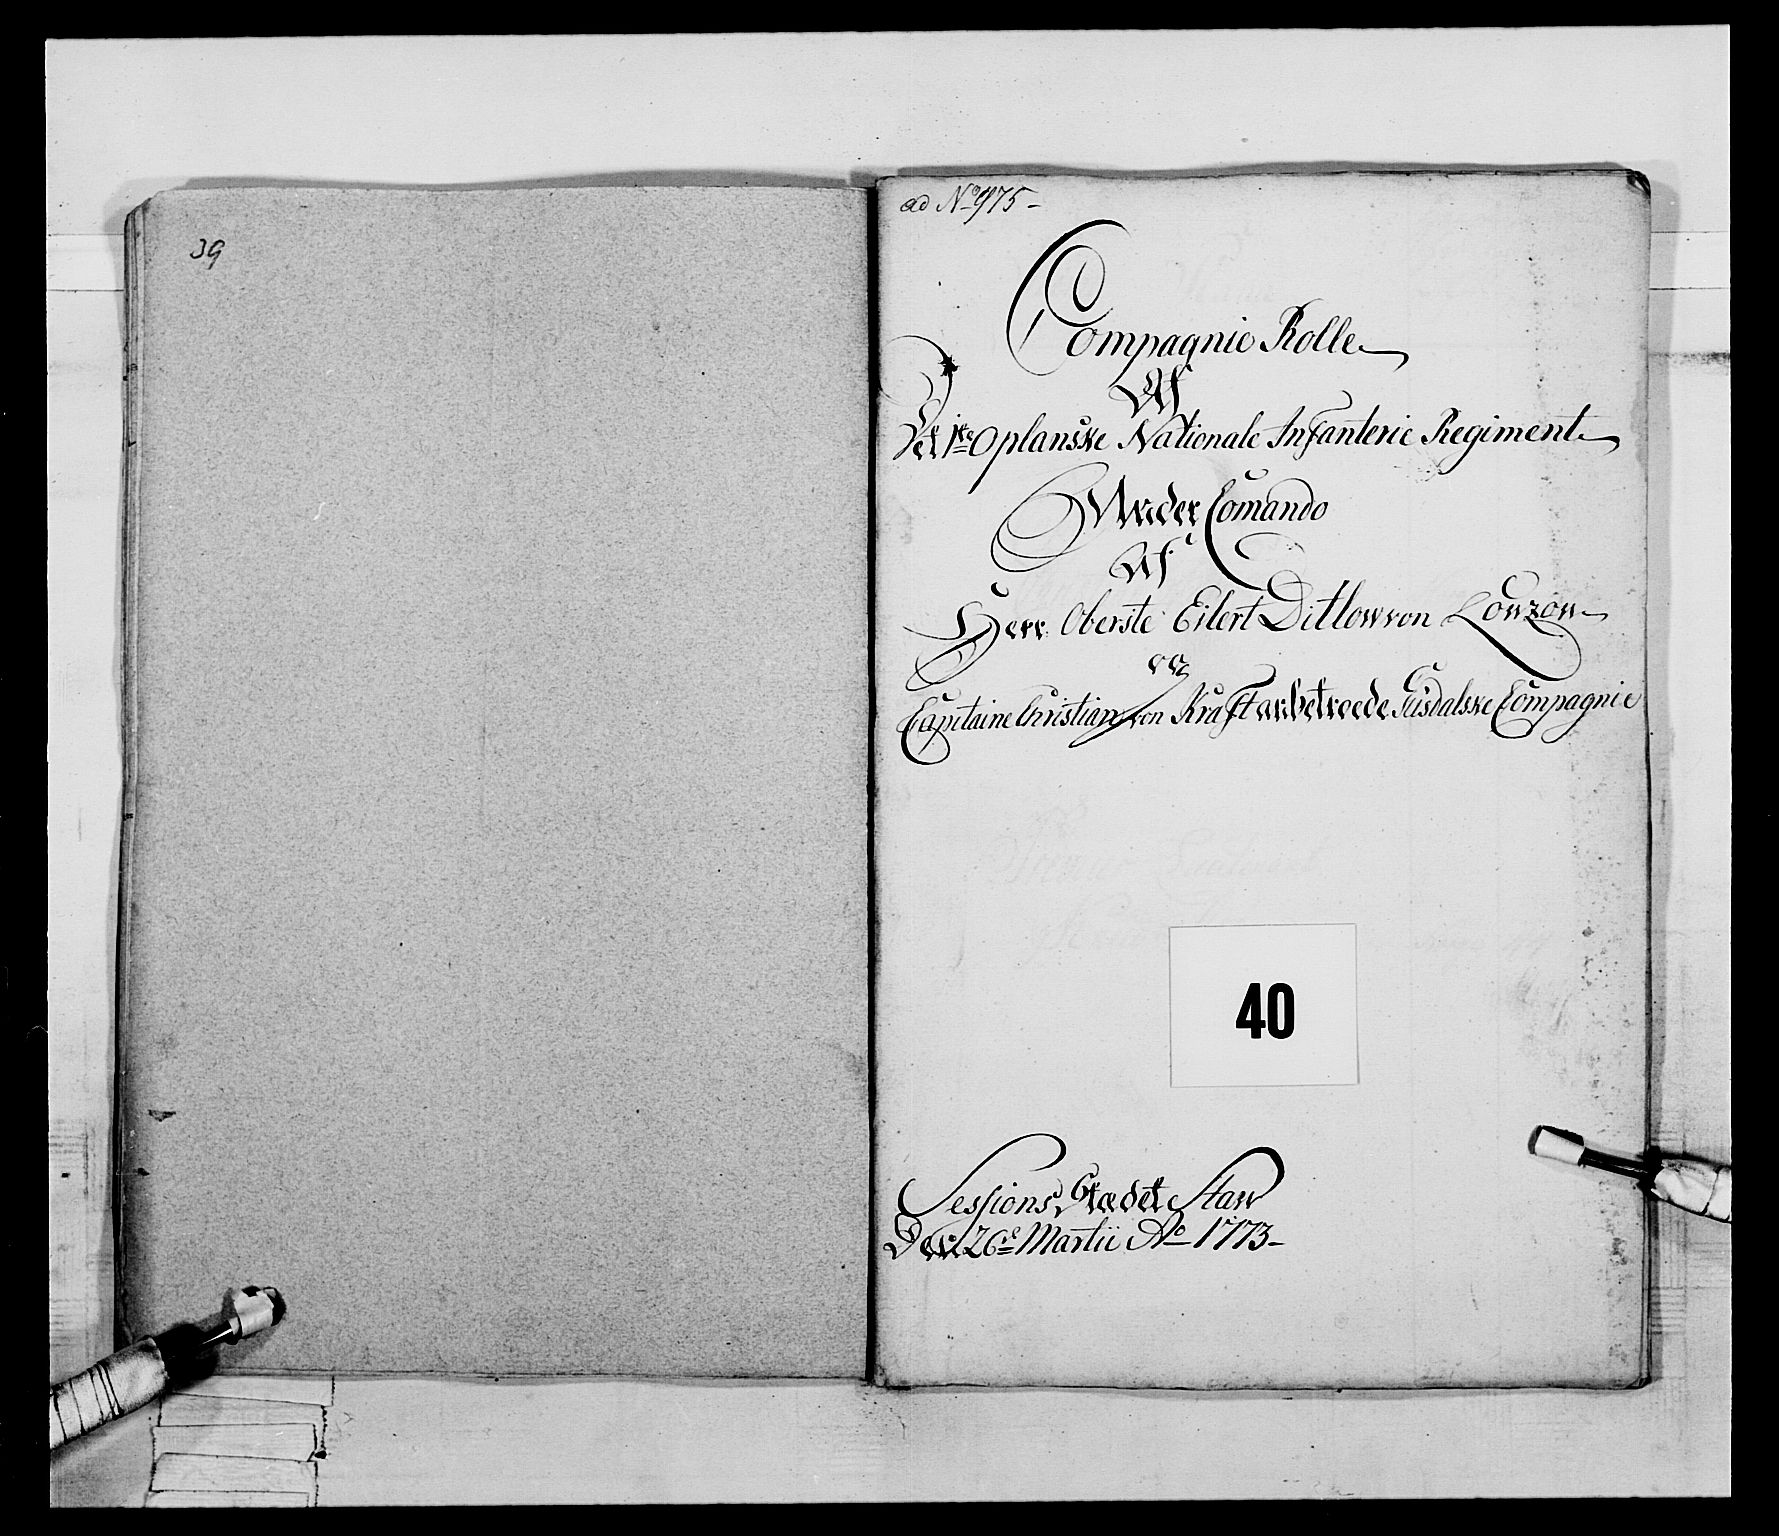 39
ad No 975-
Compagnie Rolle
Af
Det 1te Oplanske Nationale Infanterie Regiment
Under Comando
Af
Herr Oberste Eilert Ditlow von Lowzow
og
Capitaine Christian von Kraft anbetroede Guisdalske Compagnie
40
Sessions Stædet Staw
Den 26de Martii Ao 1773-